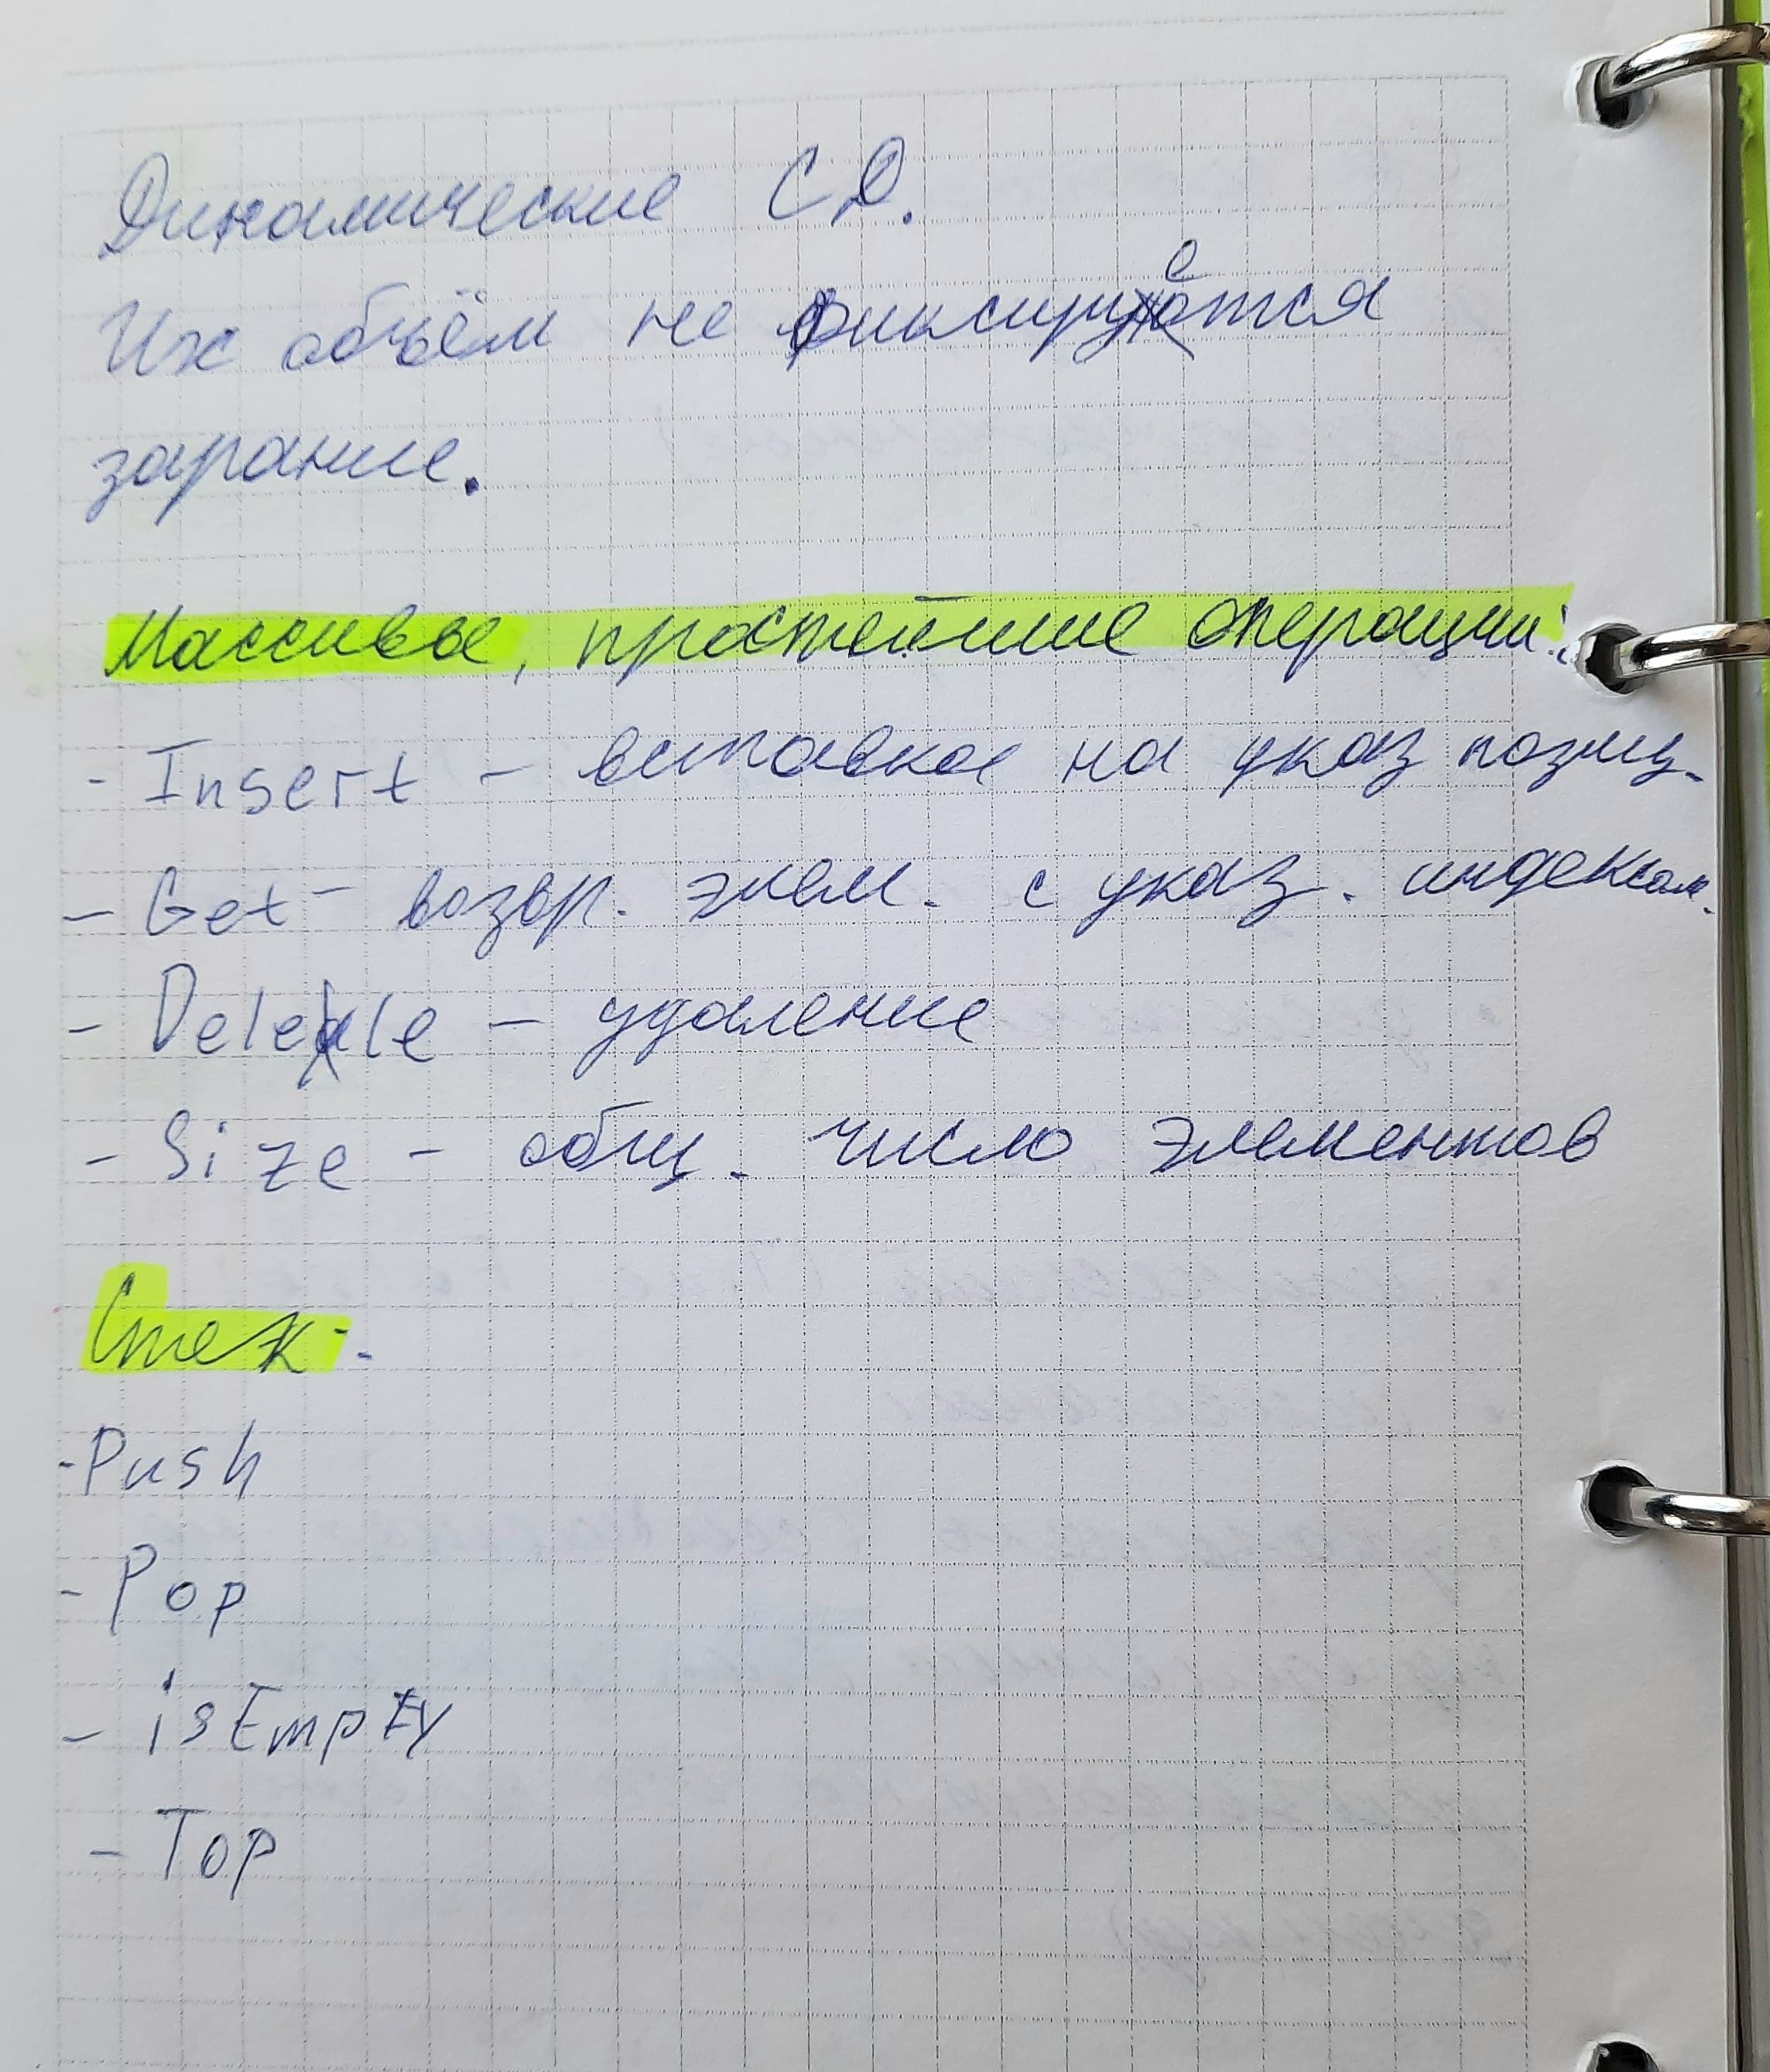 Динамические СД.
Их объём не фиксируется
зарание.
Массивы, простейшие операции:
- Insert - вставка на указ позиц.
- Get - возвр. элем. с указ. индексом.
- Delete - удаление
- Size - общ. число элементов
Стек:
- Push
- Pop
- isEmpty
- Top